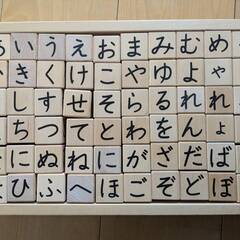 いうえおまみむめ
きくけこやゆよゃ
しすせそらるれれ
ちつてとわをんょ
にぬねにがざだば
ひふへほごぞどぼ